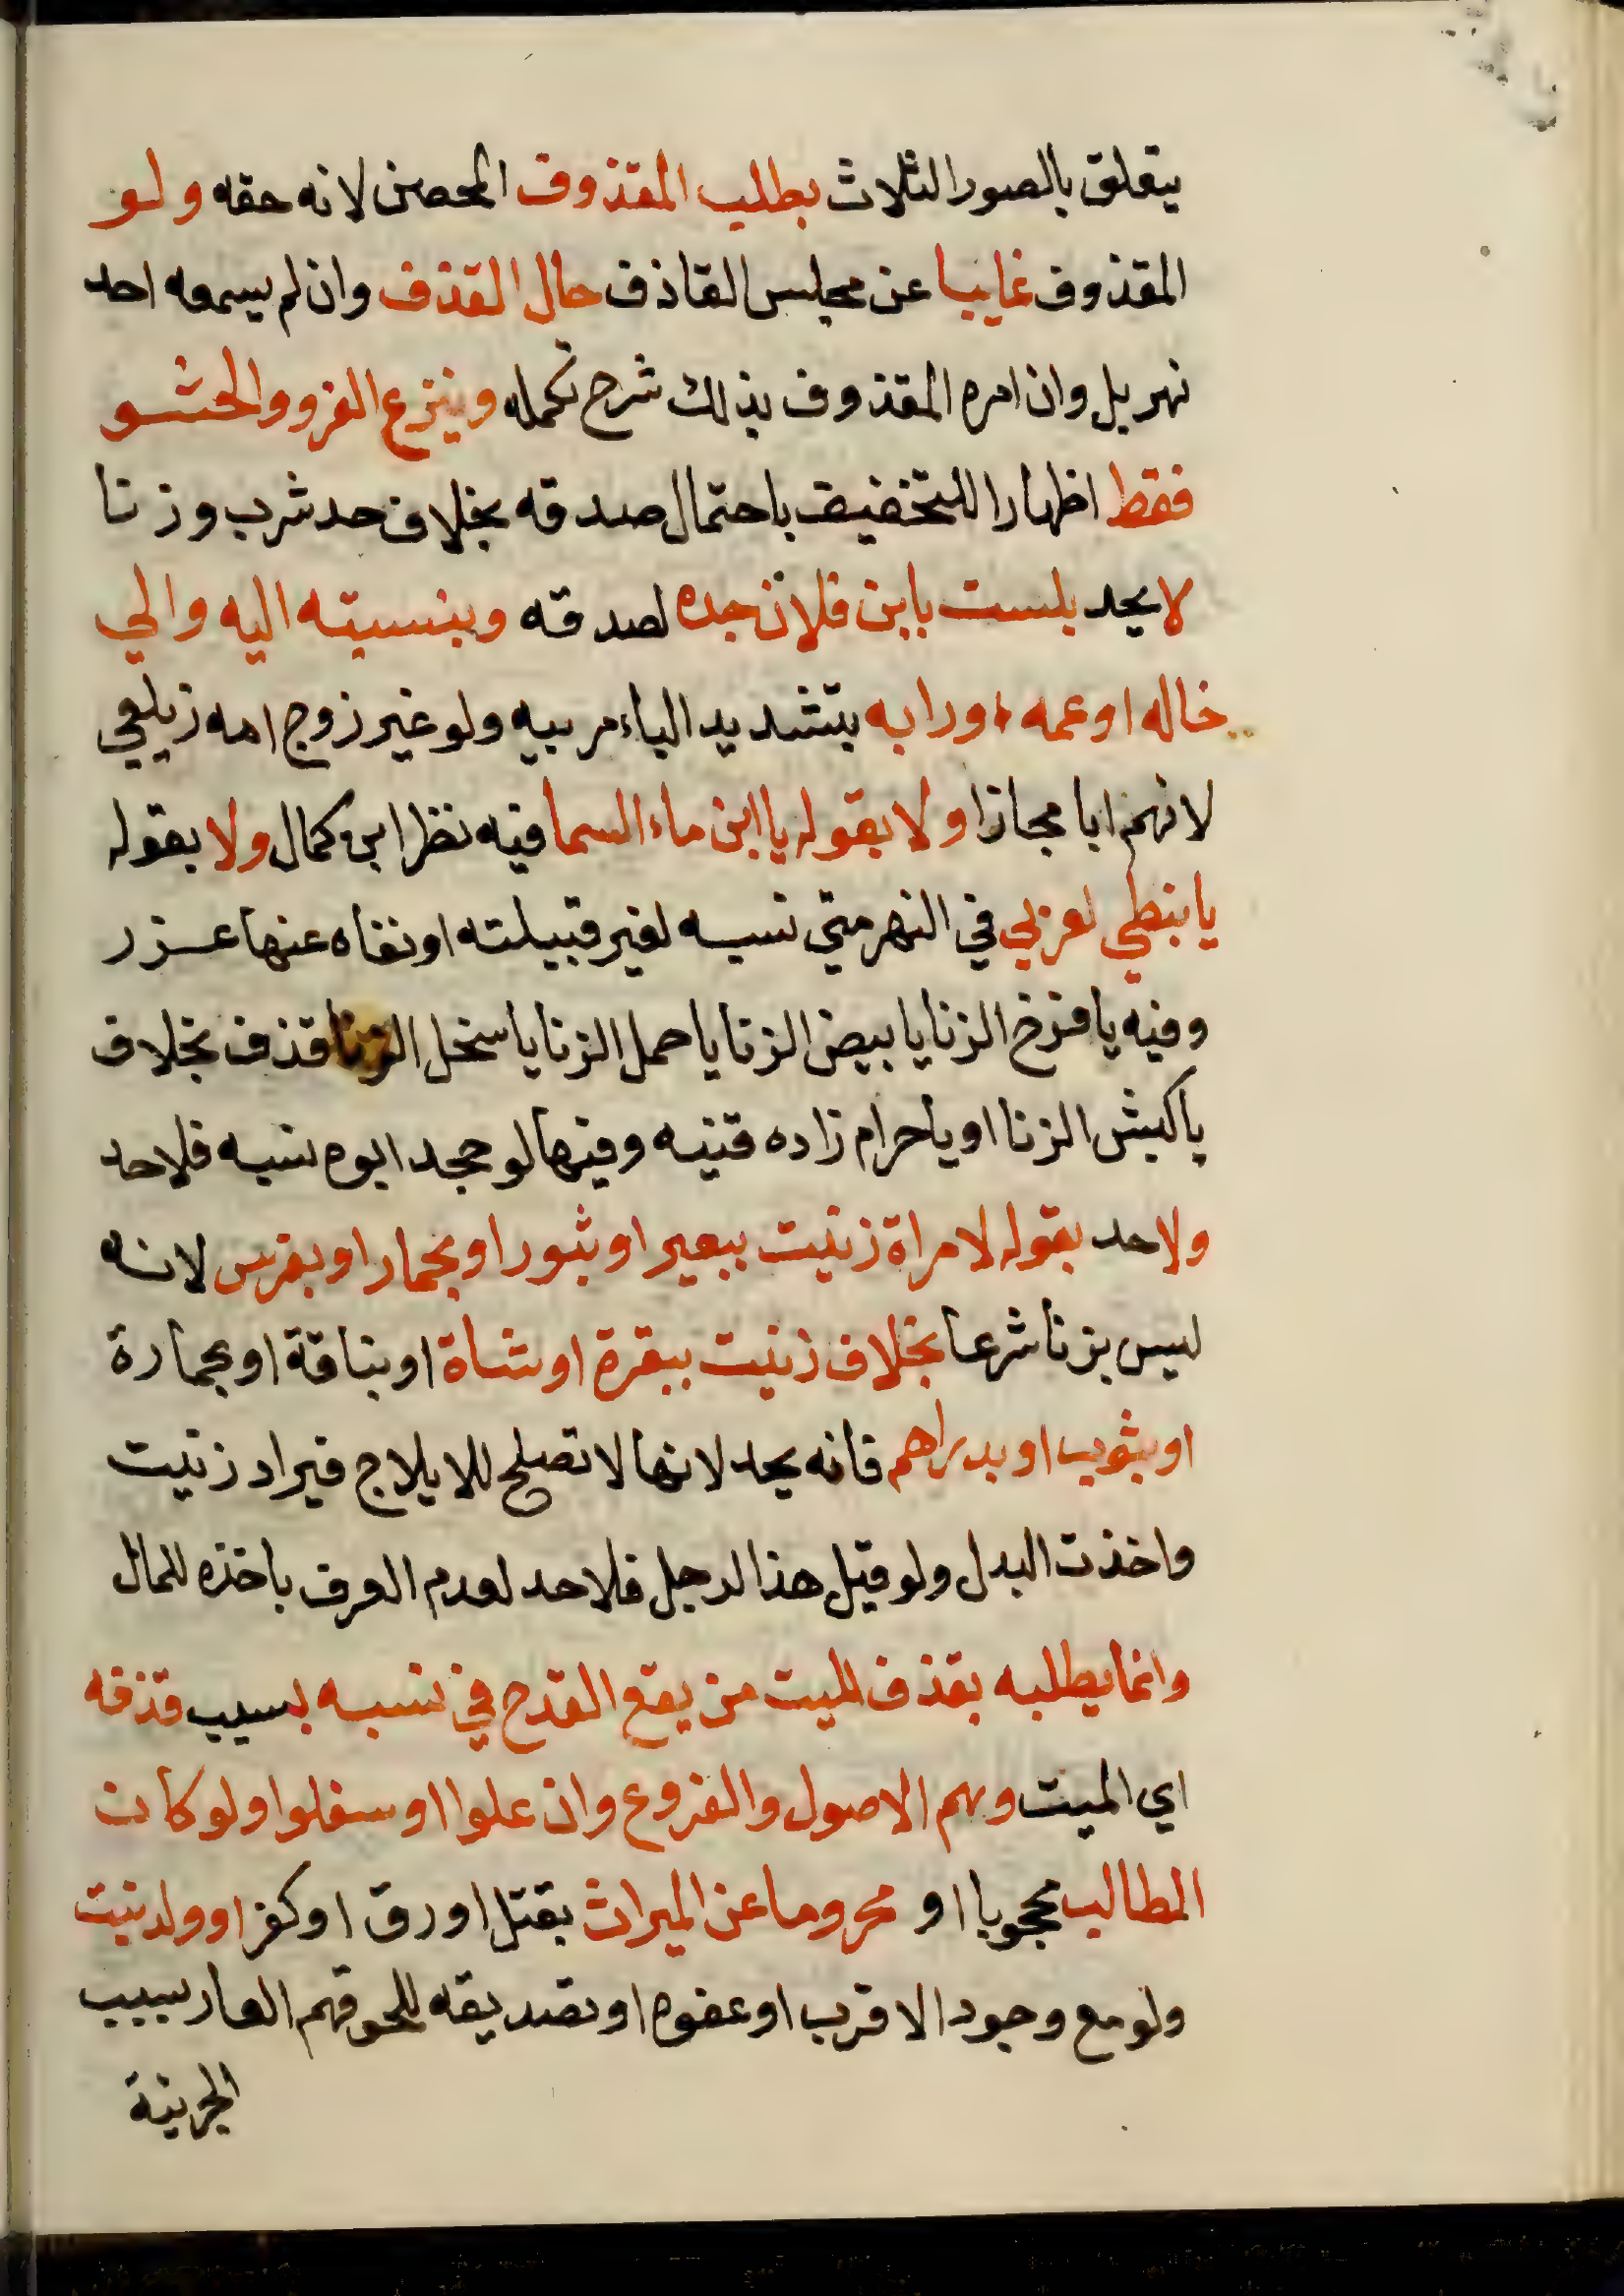 يتعلق بالصور الثلاث بطلب المقذوف المحصن لانه حقه ولو
المقذوف غايبا عن مجلس القاذف حال القذف وان لم يسمعه احد
نهر بل وان امره المقذوف بذلك شرح تكمله وينزع الفرو والحشو
فقط اظهارا للتخفيف باحتمال صدقه بخلاف حد شرب وزنا
لا يحد بلست بابن فلان جده لصدقه وبنسبته اليه والي
خاله او عمه او رابه بتشديد الباء مربيه ولو غير زوج امه زيلعي
لانهم ابا مجازا ولا بقوله يا ابن ماء السما فيه نظر ابن كمال ولا بقوله
يا نبطي لعربي في النهر متي نسبه لغير قبيلته او نفاه عنها عزر
وفيه يا فرخ الزنا يا بيض الزنا يا حمل الزنا يا سخل الزنا قذف بخلاف
يا كبش الزنا او يا حرام زاده قنيه وفيها لو جحد ابوه نسبه فلا حد
ولا حد بقوله لامراة زنيت ببعير او بثور او بحمار او بفرس لانه
ليس بزنا شرعا بخلاف زنيت ببقرة او شاة او بناقة او بحمارة
او بثوب او بدراهم فانه يحد لانها لا تصلح للايلاج فيراد زنيت
واخذت البدل ولو قيل هذا لرجل فلا حد لعدم العرف باخذه للمال
وانما يطلبه بقذف الميت من يقع القدح في نسبه بسبب قذفه
اي الميت وهم الاصول والفروع وان علوا او سفلوا ولو كان
المطالب محجوبا او محروما عن الميراث بقتل او رق او كفر او ولد بنت
ولو مع وجود الاقرب او عفوه او تصديقه للحوقهم العار بسبب
الجزيية